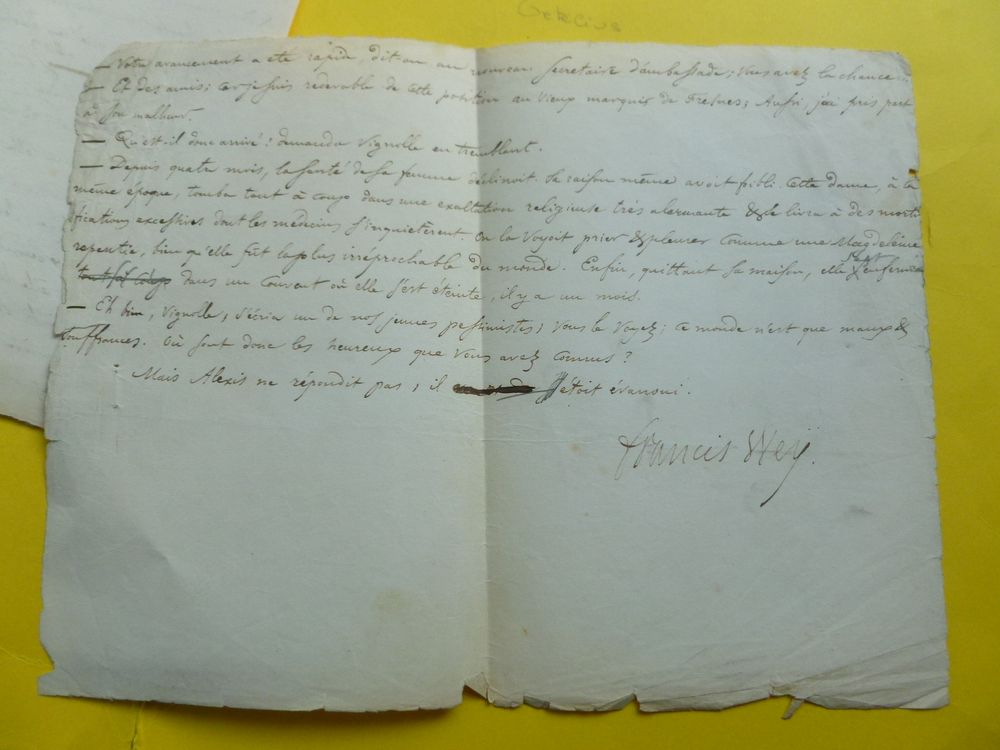 — Votre avancement a été rapide, dit on au nouveau secretaire d'ambassade; vous avez la chance
— Et des amis; car je suis redevable de cette position au vieux marquis de Fresnes; Aussi, j'ai pris part
à son malheur.
— Qu'est-il donc arrivé? demanda Vignolle en tremblant.
— Depuis quatre mois, la santé de sa femme déclinoit. Sa raison même avoit faibli. Cette dame, à la
même époque, tomba tout à coup dans une exaltation religieuse très alarmante & se livra à des morti
fications excessives dont les médecins s'inquiétèrent. On la voyoit prier & pleurer comme une Magdeleine
repentie, bien qu'elle fût la plus irréprochable du monde. Enfin, quittant sa maison, elle s'enferma
dans un couvent où elle s'est éteinte, il y a un mois.
— Eh bien, Vignolle, s'écria un de nos jeunes pessimistes; vous le voyez; ce monde n'est que maux &
souffrances. Où sont donc les heureux que vous avez connus?
Mais Alexis ne répondit pas; il s'étoit évanoui.
Francis Wey.